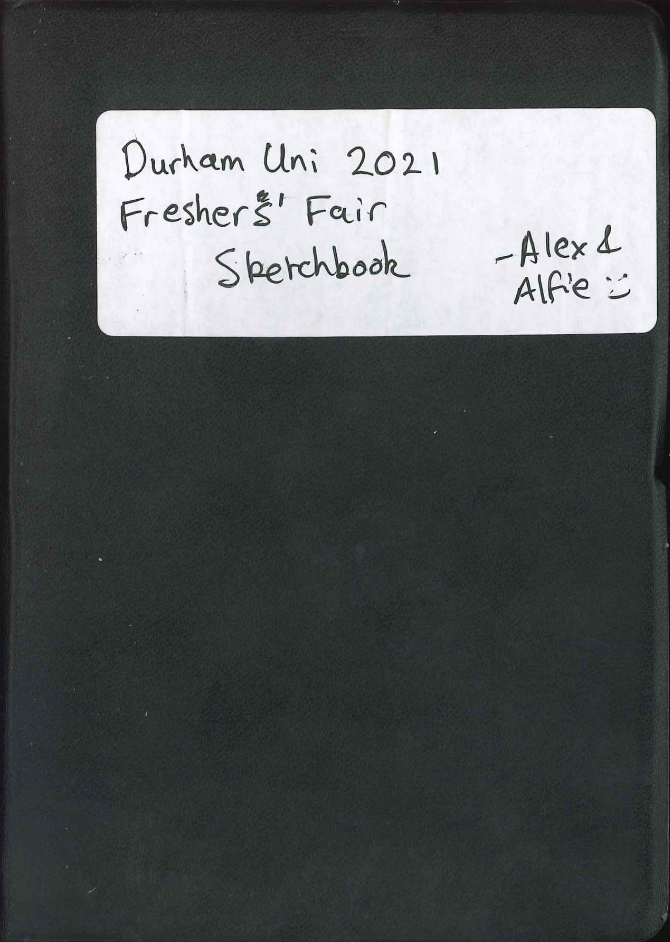 Durham Uni 2021
Freshers' Fair
Sketchbook
-Alex &
Alfie :)